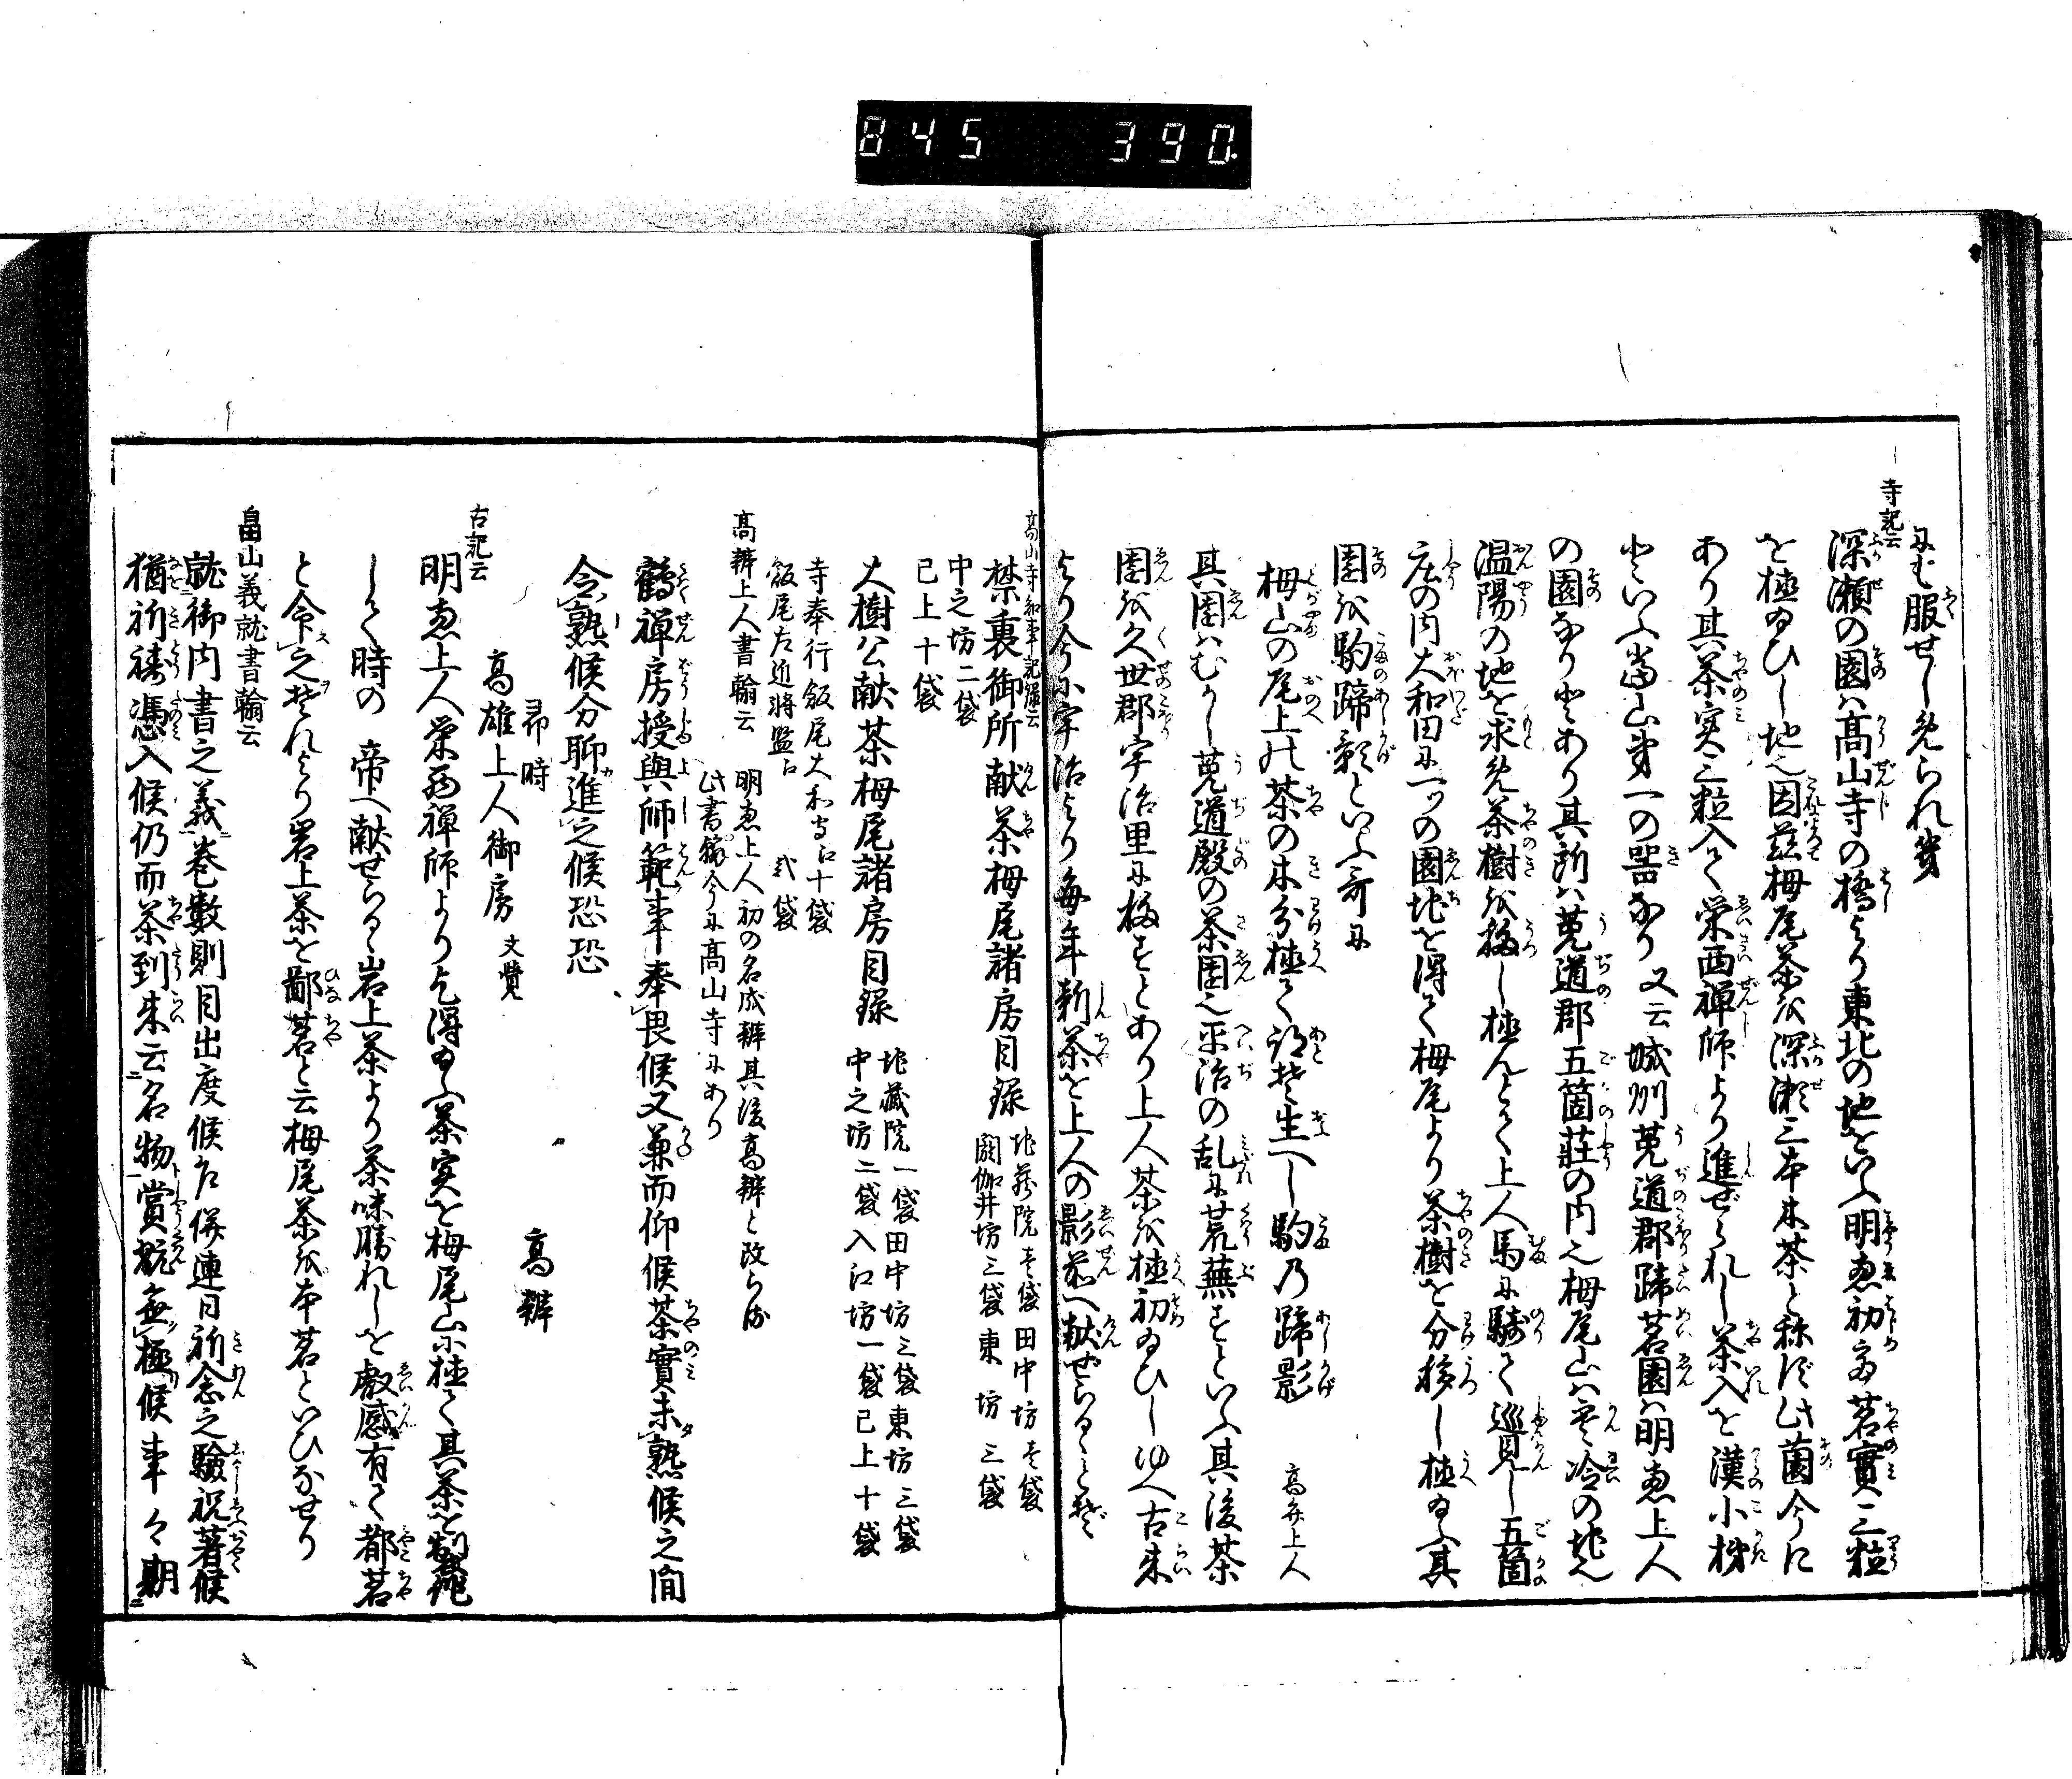 845 390.
にも服せしめられ畢
寺記云
深瀬の園は高山寺の橋より東北の地をいふ明恵初て茗實三粒
を植ゐひし地也因茲栂尾茶を深瀬三本木茶と称ず此薗今に
あり其茶実三粒入て栄西禅師より進ぜられし茶入を漢小柿
といふ當山第一の什なり 又云城州莵道郡蹄茗園は明恵上人
の園なりとあり其所は莵道郡五箇荘の内也栂尾山は寒冷の地也
温陽の地を求め茶樹を移し植んとて上人馬に騎て巡見し五箇
庄の内大和田に一つの園地を得て栂尾より茶樹を分移し植ゐふ其
園を駒蹄影といふ哥に
栂山の尾上の茶の木分植て迹ぞ生へし駒乃蹄影 高弁上人
其園はむかし莵道殿の茶園也平治の乱に荒蕪すといふ其後茶
園を久世郡宇治里に移すとあり上人茶を植初ゐひしゆへ古来
より今に宇治より毎年新茶を上人の影前へ献せらるゝとぞ
高山寺
禁裏御所献茶栂尾諸房目録 地蔵院壱袋 田中坊壱袋
閼伽井坊三袋 東坊三袋
中之坊二袋
已上十袋
大樹公献茶栂尾諸房目録 地蔵院一袋 田中坊三袋 東坊三袋
中之坊二袋 入江坊一袋 已上十袋
寺奉行飯尾大和守江十袋
飯尾左近将監江 弐袋
高辨上人書翰云 明恵上人初の名成辨其後高辨と改らる
此書翰今に高山寺にあり
鶴禅房授與師範事奉畏候又兼而仰候茶實未熟候之間
令熟候分聊進之候恐恐
即時 高辨
高雄上人御房 文覚
古記云
明恵上人栄西禅師より乞得ゐふ茶実を栂尾山に植て其茶を制範
して時の 帝へ献せらるゝ岩上茶より茶味勝れしを叡感有て都茗
と令之それより岩上茶を鄙茗と云栂尾茶を本茗といひなせり
畠山義就書翰云
就御内書之義巻数則目出度候尤併連日祈念之驗祝著候
猶祈祷憑入候仍而茶到来云名物賞翫無極候事々期